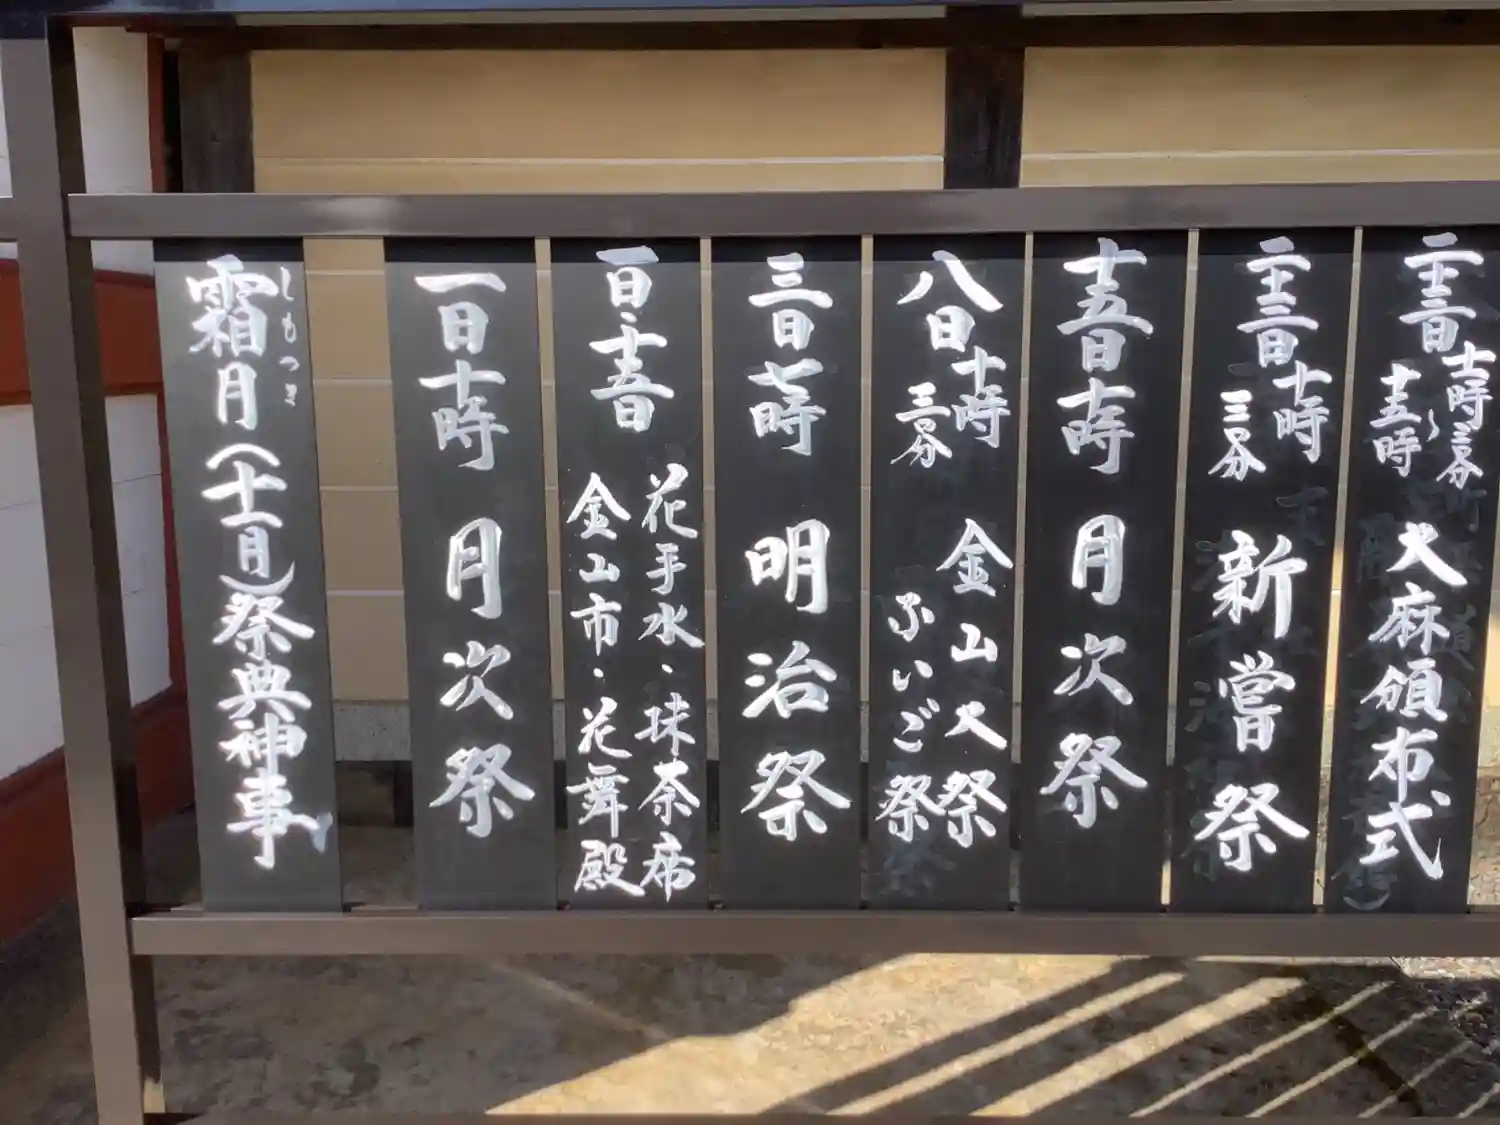 霜月(十一月)祭典神事
しもつき
一日十時 月次祭
一日・十五日
花手水・抹茶席
金山市・花舞殿
三日七時 明治祭
八日
十時
三十分
金山大祭
ふいご祭
十五日十時 月次祭
二十三日
十時
三十分
新嘗祭
二十三日
十一時三十分
～十五時
大麻頒布式